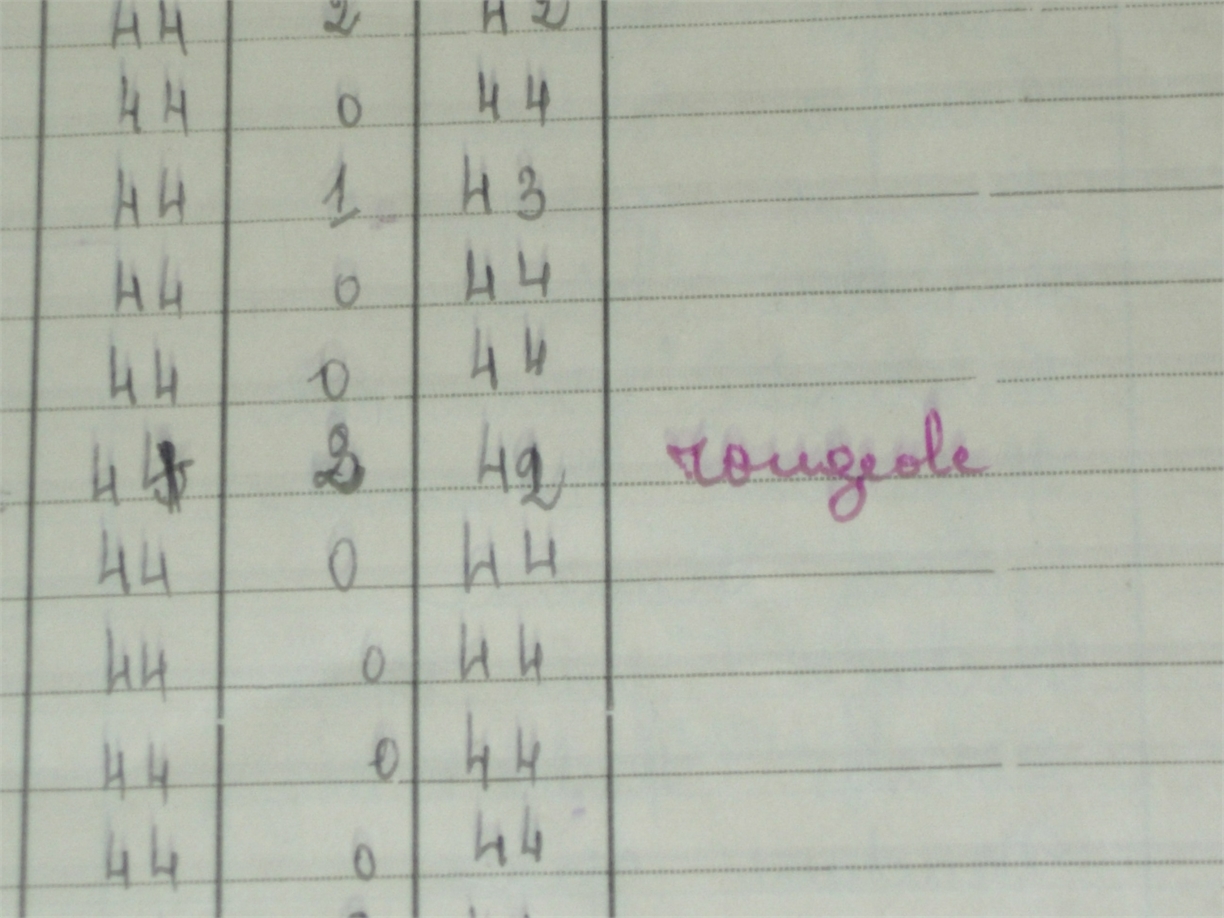 44 2 42
44 0 44
44 1 43
44 0 44
44 0 44
44 2 42 rougeole
44 0 44
44 0 44
44 0 44
44 0 44